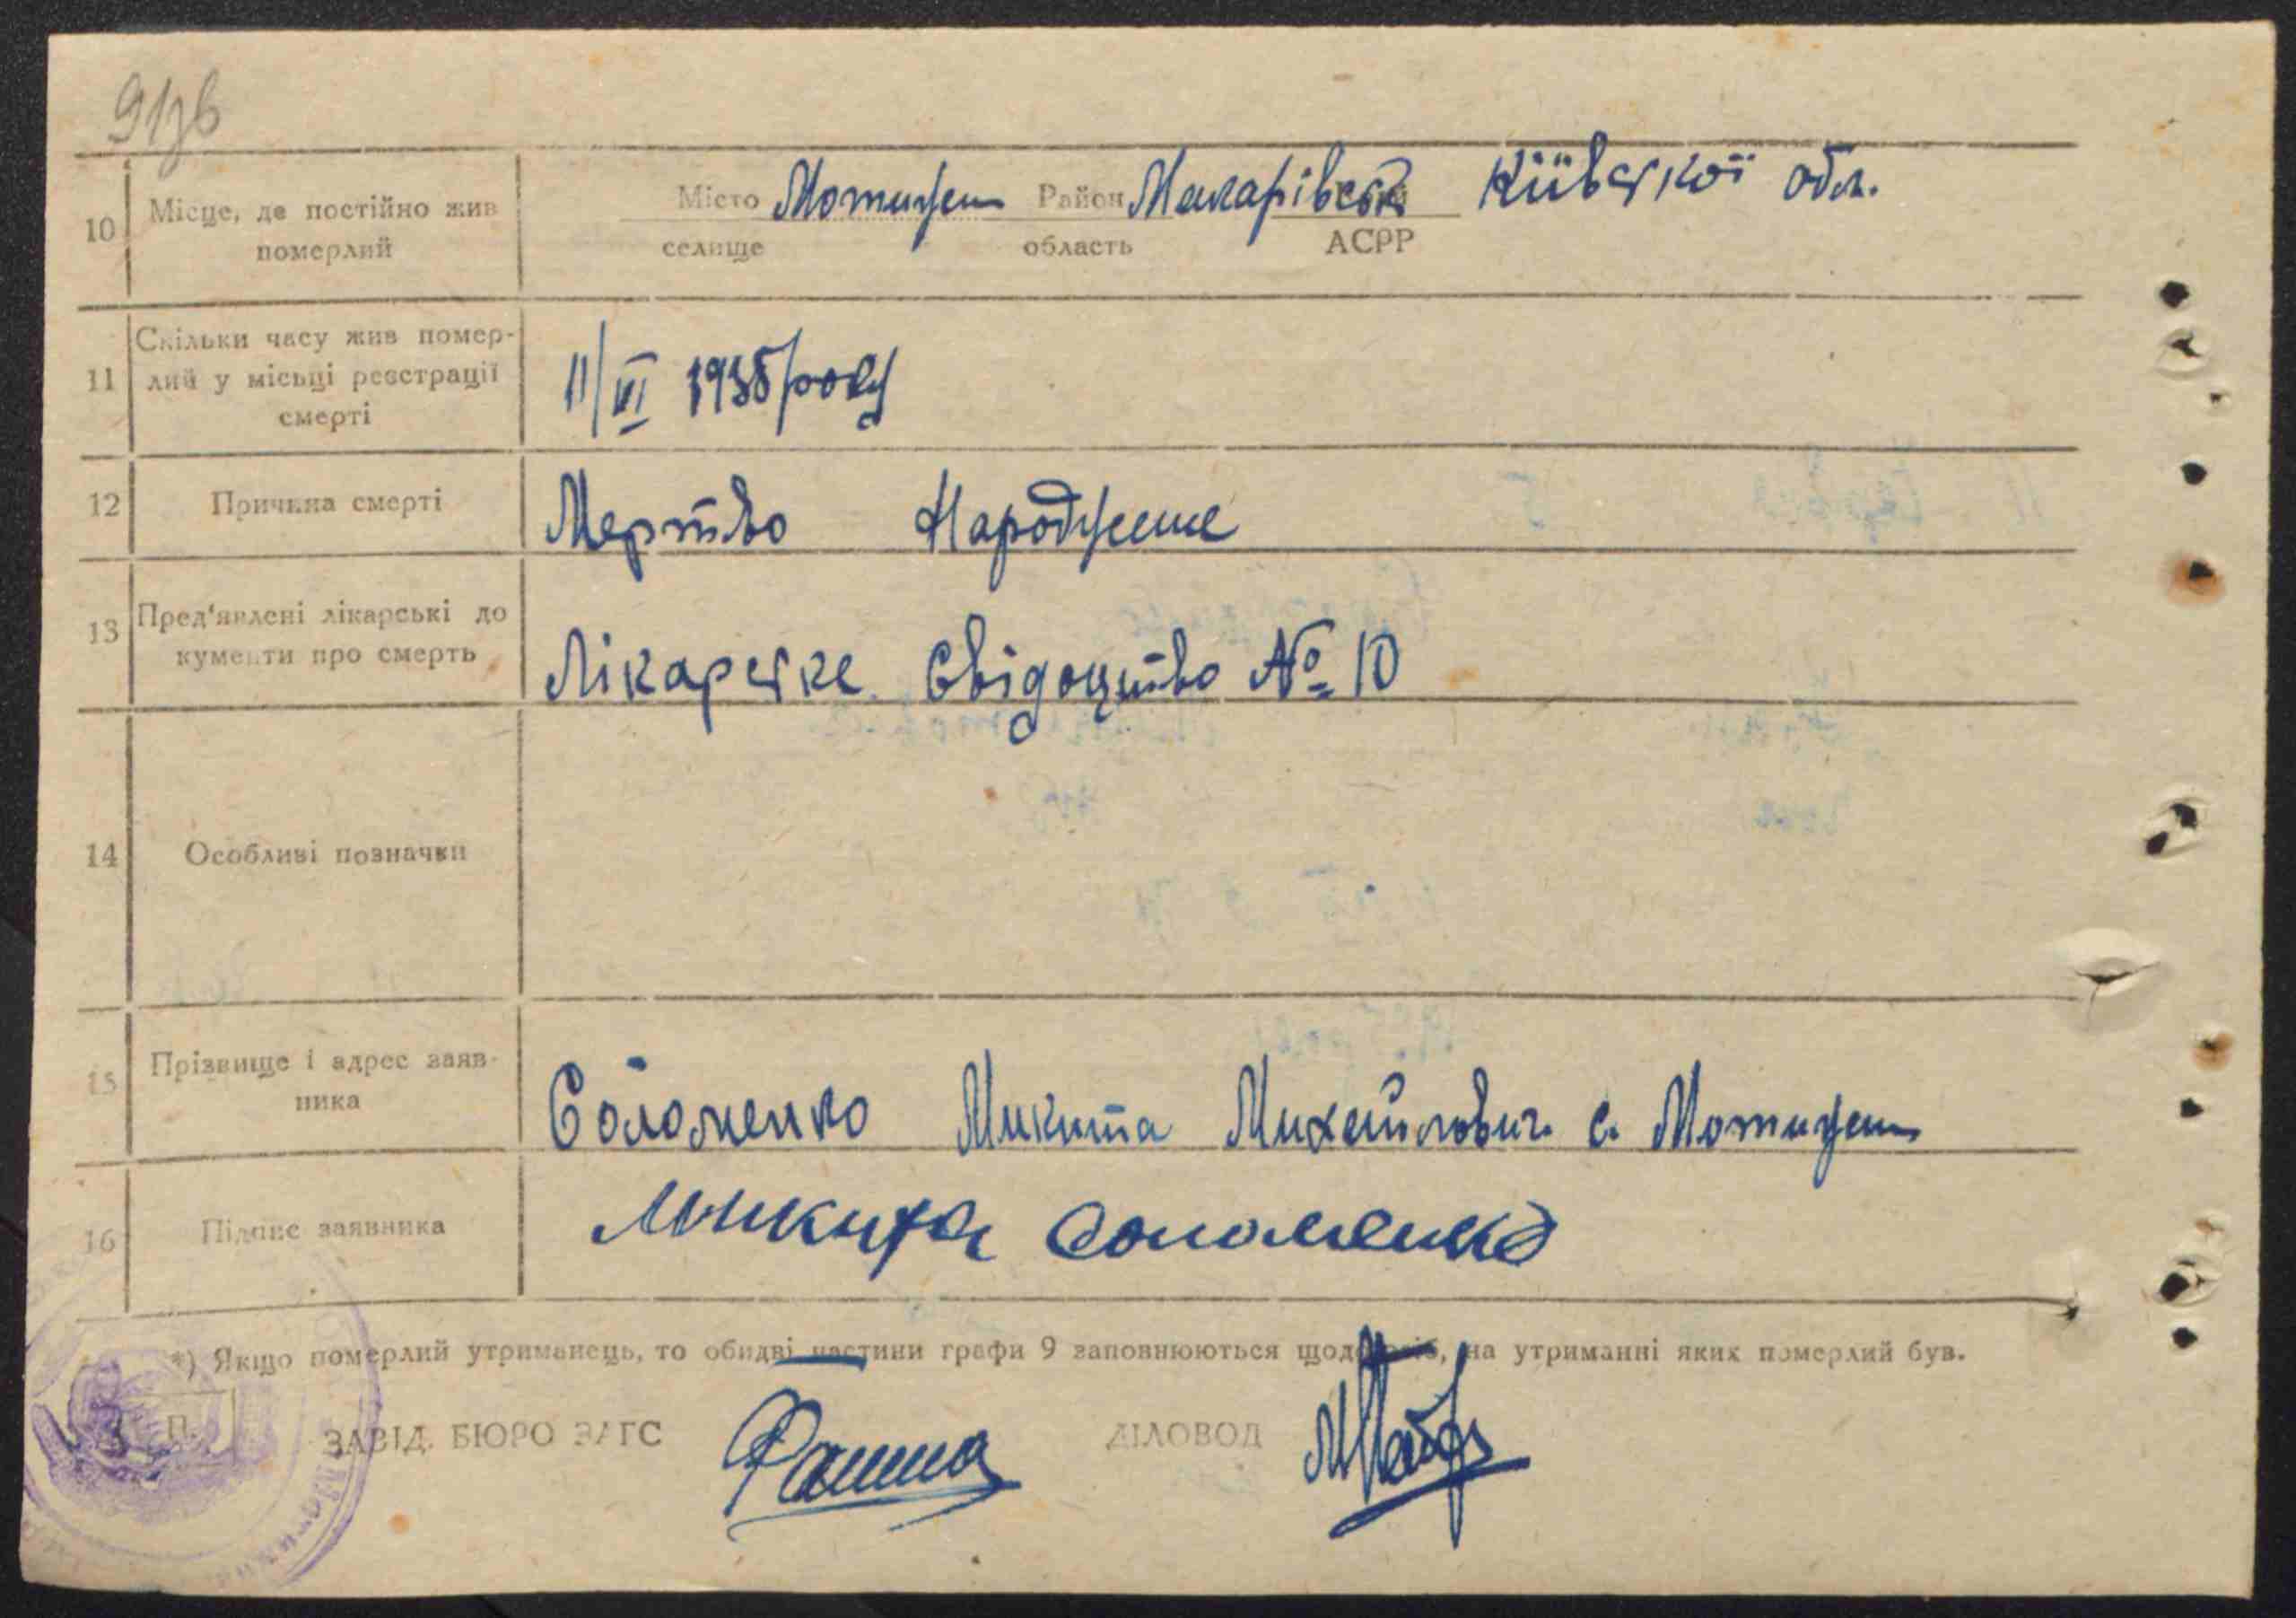 10 Місце, де постійно жив Місто Мотижен Район Макарівськ Київської обл.
померлий селище область АСРР
Скільки часу жив помер-
11 лий у місьці реєстрації 11/VI 1935 року
смерті
12 Причина смерті Мертво Народжене
13 Пред'явлені лікарські до
кументи про смерть Лікарске Свідоцтво № 10
14 Особливі позначки
15 Прізвище і адрес заяв-
ника Соломенко Микита Михайлович с. Мотижен
16 Підпис заявника Микита Соломенко
*) Якщо померлий утриманець, то обидві частини графи 9 заповнюються щодо осіб, на утриманні яких померлий був.
П.
ЗАВІД. БЮРО ЗАГС ДІЛОВОД